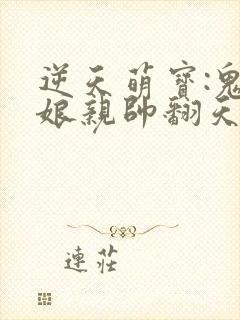 逆天萌寶:鬼
娘親帥翻天
連莊